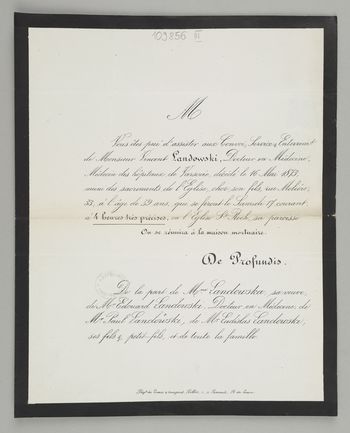 109856 III
M
Vous êtes prié d'assister aux Convoi, Service & Enterrement
de Monsieur Vincent Landowski, Docteur en Médecine,
Médecin des hôpitaux de Varsovie, décédé le 16 Mai 1873,
muni des sacrements de l'Eglise, chez son fils, rue Molière,
33, à l'âge de 59 ans, qui se feront le Samedi 17 courant,
à 4 heures très précises, en l'Eglise St Roch, sa paroisse.
On se réunira à la maison mortuaire.
De Profundis.
De la part de Mme Landowska, sa veuve,
de Mr Edouard Landowski, Docteur en Médecine, de
Mr Paul Landowski, de Mr Ladislas Landowski,
ses fils & petit-fils, et de toute la famille.